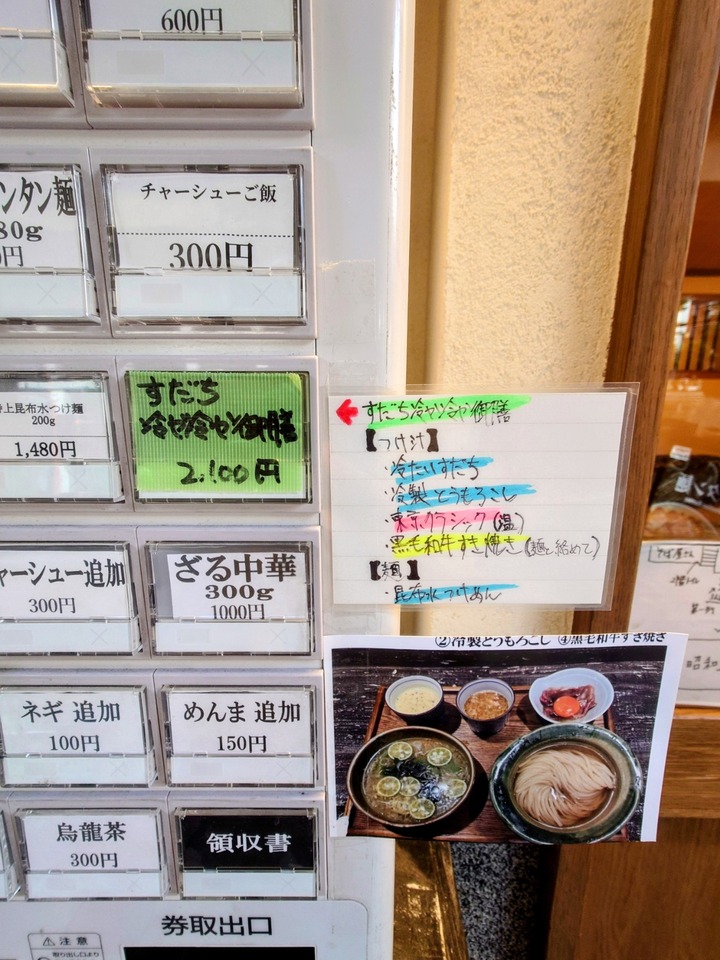 600円
ンタン麺
80g
円
チャーシューご飯
300円
特上昆布水つけ麺
200g
1,480円
すだち
冷や冷や御膳
2.100円
ャーシュー追加
300円
ざる中華
300g
1000円
ネギ 追加
100円
めんま 追加
150円
烏龍茶
300円
領収書
券取出口
注意
取り出し口より
すだち冷や冷や御膳
【つけ汁】
・冷たいすだち
・冷製とうもろこし
・東京クラシック(温)
・黒毛和牛すき焼き(麺と絡めて)
【麺】
・昆布水つけめん
②冷製とうもろこし ④黒毛和牛すき焼き
そば屋さん
昭和